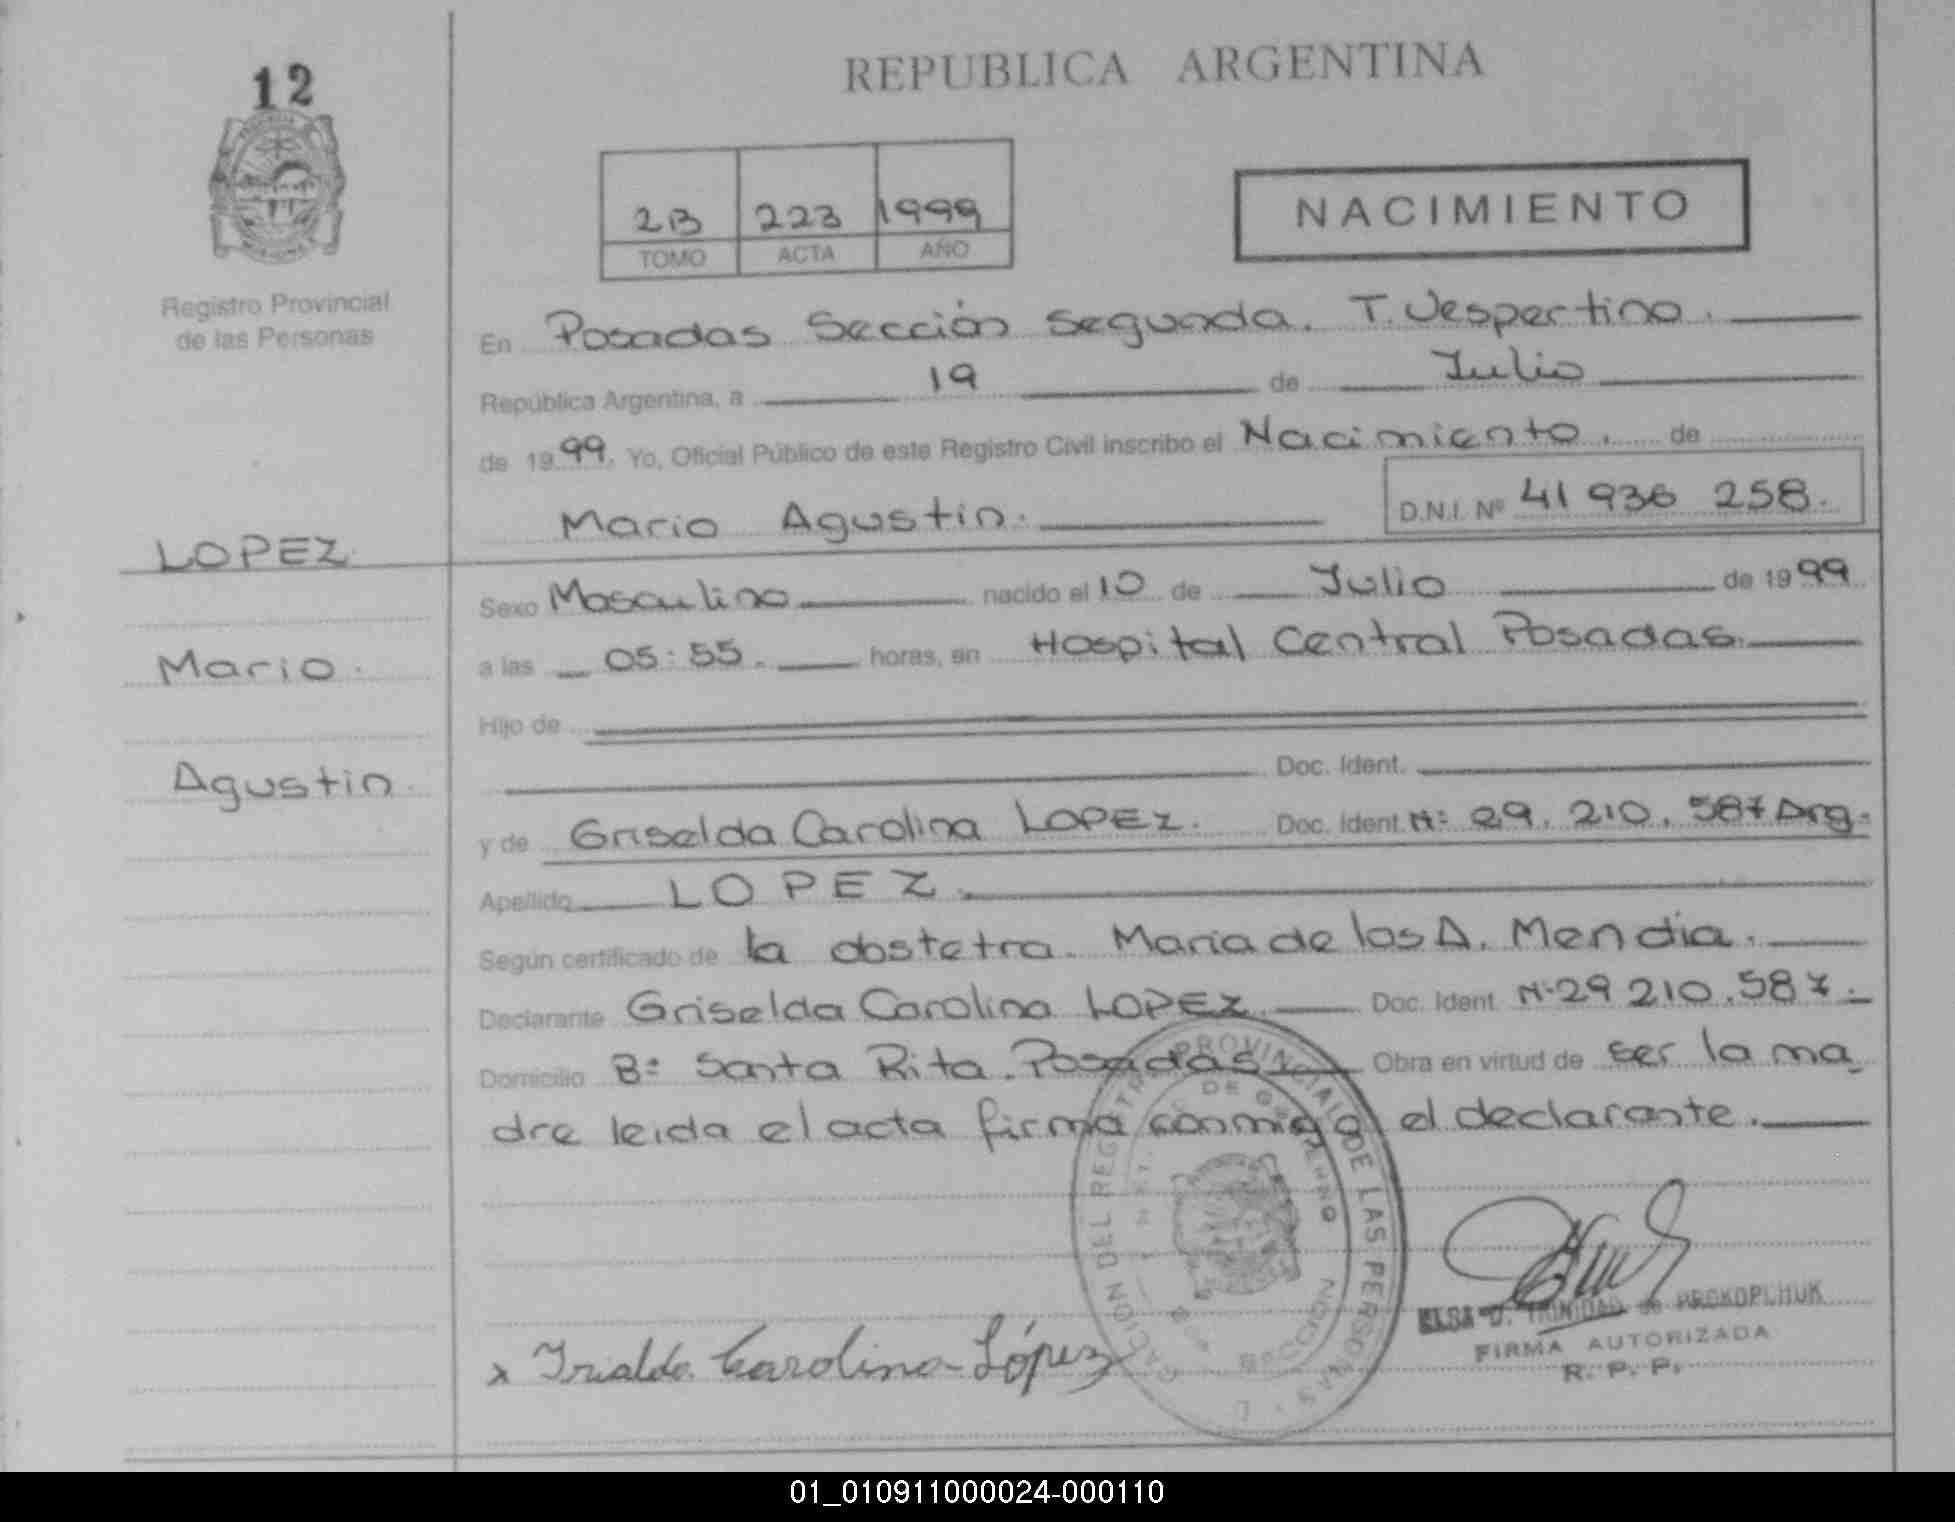 12
REPUBLICA ARGENTINA
2B 223 1999
TOMO ACTA AÑO
NACIMIENTO
Registro Provincial
de las Personas
En Posadas Sección Segunda. T. Vespertino.
República Argentina, a 19 de Julio
de 1999. Yo, Oficial Público de este Registro Civil inscribo el Nacimiento. de
Mario Agustin. D.N.I. Nº 41 936 258.
LOPEZ.
Mario.
Agustin.
Sexo Masculino nacido el 10 de Julio de 1999
a las 05:55. horas, en Hospital Central Posadas.
Hijo de
Doc. Ident.
y de Griselda Carolina LOPEZ. Doc. Ident. Nº 29.210.587 Arg.
Apellido LOPEZ.
Según certificado de la obstetra. Maria de los A. Mendia.
Declarante Griselda Carolina LOPEZ Doc. Ident. Nº 29 210.587.
Domicilio Bº Santa Rita. Posadas Obra en virtud de ser la ma
dre leida el acta firma conmigo el declarante.
DEL REGISTRO PROVINCIAL DE LAS PERSONAS
DE GOBIERNO
SECCION
x Carolina López
ELSA D. TRINIDAD de PROKOPCHUK
FIRMA AUTORIZADA
R. P. P.
01_010911000024-000110